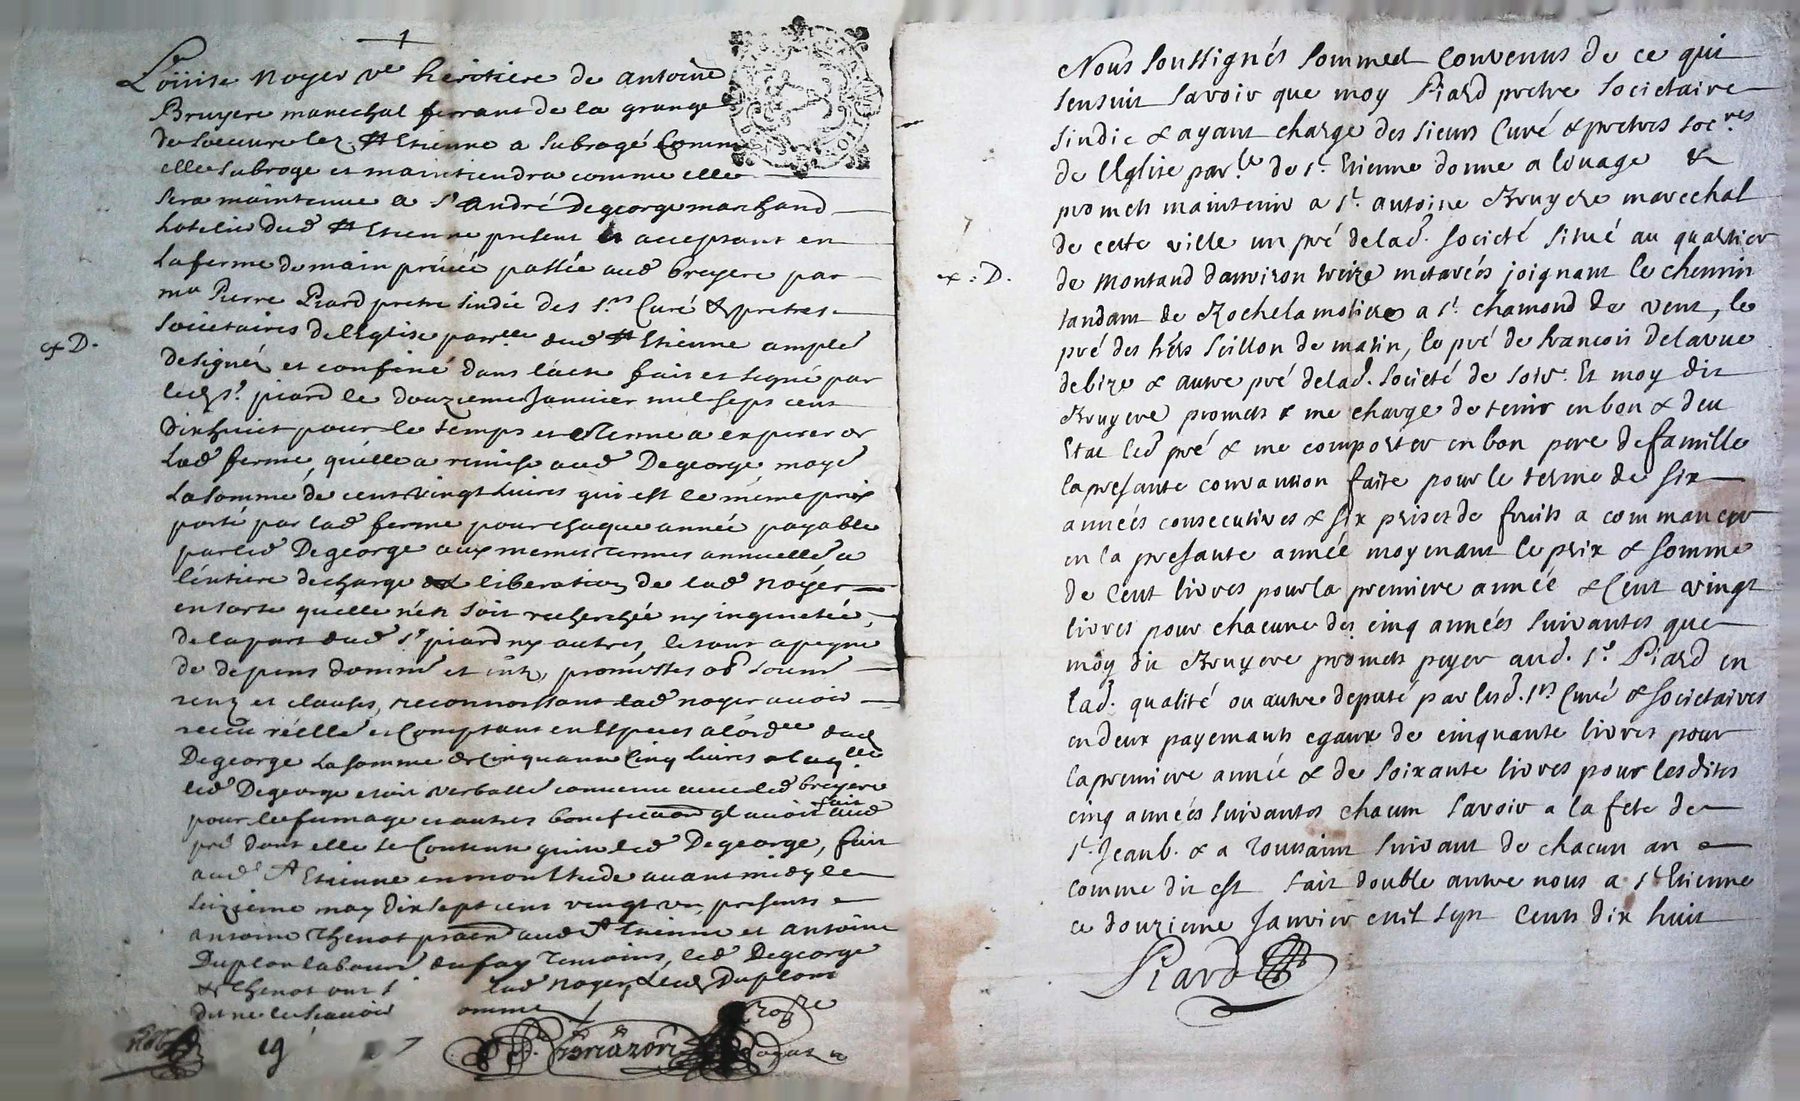 Loüise noyer ve heritiere de antoine
Bruyere marechal ferrant de la grange
de loeuvre lez St Etienne a subrogé Comme
elle subroge et maintiendra comme elle
sera maintenue a Sr André Degeorge marchand
hotelier dud St Etienne present et acceptant en
la ferme de main privée passée aud bruyere par
me Pierre Piard pretre sindic des Srs Curé & pretres
societaires de l'Eglise parlle dud St Etienne ample
designé et confiné dans l'acte fait et signé par
led Sr piard le douzieme Janvier mil sept cent
dix huict pour le temps et terme a expirer de
lad ferme, qu'elle a remise aud Degeorge moyent
la somme de cent vingt livres qui est le même prix
porté par lad ferme pour chaque année payable
par led Degeorge aux memes termes annuelle a
l'entiere decharge et liberation de lad noyer
en sorte qu'elle n'en soit recherchée ny inquietée,
de la part dud Sr piard ny autres, le tout a peyne
de depens domm et int, promesses obl soum
renz et clauses, reconnoissant lad noyer avoir
receu réelle et Comptant en Especes
Degeorge la somme de Cinquante Cinq livres
led Degeorge etoit verballe convenu avec led bruyere
pour le fumage et autres bonification ql avoit fait aud
pré dont elle se Contente quitte led Degeorge, fait
aud St Etienne en mon Etude avant midy le
seizieme may dix sept cent vingt un, presents
antoine Thenot praen aud St Etienne et antoine
Duplon labour du fay temoins, led Degeorge
& Thenot ont lad noyer & led Duplon
de ne le scavoir
+ D.
Nous soussignés sommes Convenus de ce qui
sensuit savoir que moy Piard pretre societaire
sindic & ayant charge des sieurs Curé & pretres socres
de l'Eglise parle de St Etienne donne a louage &
promets maintenir a Sr antoine Bruyere marechal
de cette ville un pré de lad. societé situé au quartier
de Montaud d'anviron treize metarées joignant le chemin
tandant de Rochelamoliere a St chamond de vent, le
pré des hérs Seillon de matin, le pré de francois delarue
de bize & autre pré de lad. societé de soir. Et moy dit
Bruyere promets & me charge de tenir en bon & deu
Etat led pré & me comporter en bon pere de famille
la presante convantion faite pour le terme de six
années consecutives & six prises de fruits a commancer
en la presante année moyenant le prix & somme
de Cent livres pour la premiere année & Cent vingt
livres pour chacune des cinq années suivantes que
moy dit Bruyere promets payer aud. Sr Piard en
lad. qualité ou autre deputé par lesd. Srs Curé & societaires
en deux payemants egaux de cinquante livres pour
la premiere année & de soixante livres pour lesdites
cinq années suivantes chacun savoir a la fete de
St Jean b. & a Toussaint suivant de chacun an
comme dit est fait double antre nous a St Etienne
ce douzieme Janvier mil sept Cents dix huit
Piard
+ : D.